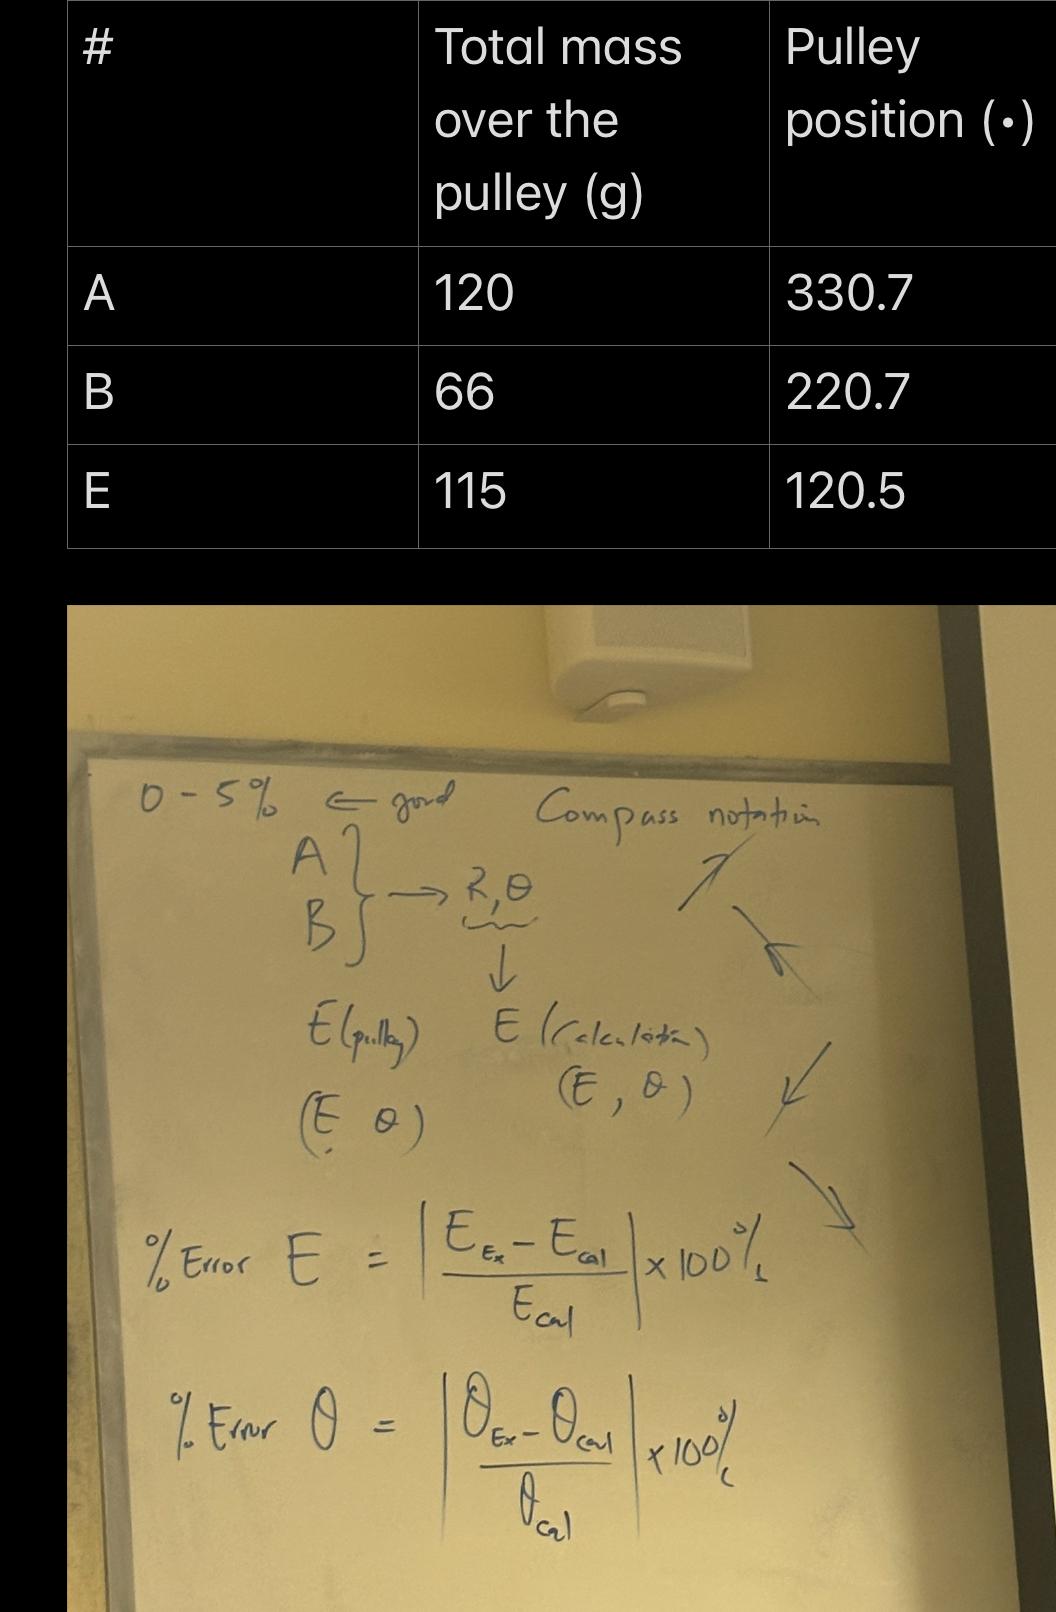 # Total mass over the pulley (g) Pulley position (•)
A 120 330.7
B 66 220.7
E 115 120.5
0 - 5% ← good Compass notation
A
B } → R, θ
↓
E (pulley) E (Calculation)
(E θ) (E, θ)
% Error E = | E_Ex - E_cal / E_cal | × 100%
% Error θ = | θ_Ex - θ_cal / θ_cal | × 100%